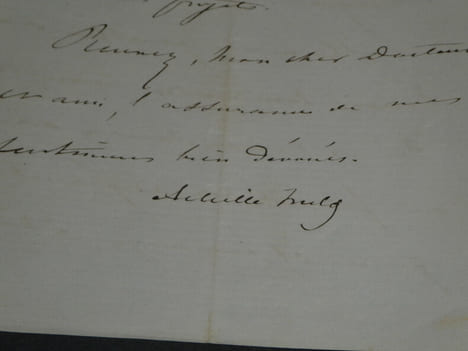 projets.
Recevez, mon cher Docteur
et ami, l'assurance de mes
sentiments bien dévoués.
Achille